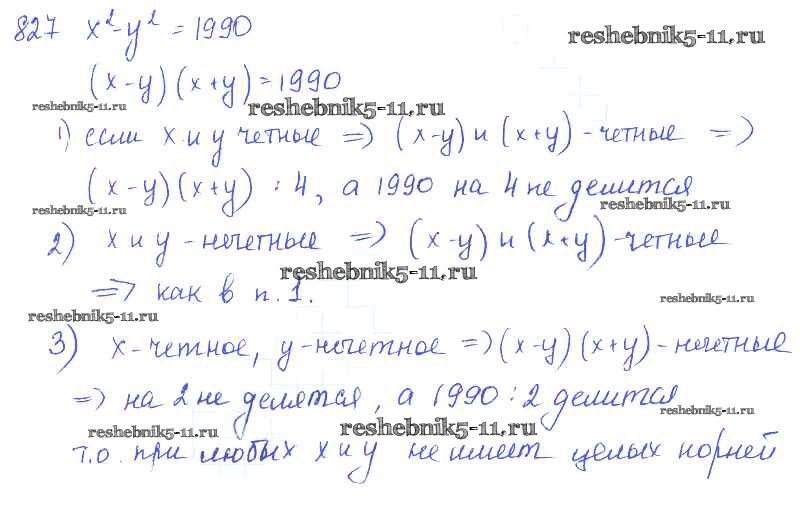 827 x²-y² = 1990
reshebnik5-11.ru
(x-y)(x+y)=1990
reshebnik5-11.ru
reshebnik5-11.ru
1) если x и y четные => (x-y) и (x+y) - четные =>
(x-y)(x+y) : 4, а 1990 на 4 не делится
reshebnik5-11.ru
reshebnik5-11.ru
2) x и y - нечетные => (x-y) и (x+y) - четные
reshebnik5-11.ru
=> как в п. 1.
reshebnik5-11.ru
reshebnik5-11.ru
3) x - четное, y - нечетное => (x-y)(x+y) - нечетные
=> на 2 не делятся, а 1990 : 2 делится
reshebnik5-11.ru
reshebnik5-11.ru
reshebnik5-11.ru
т.о. при любых x и y не имеет целых корней